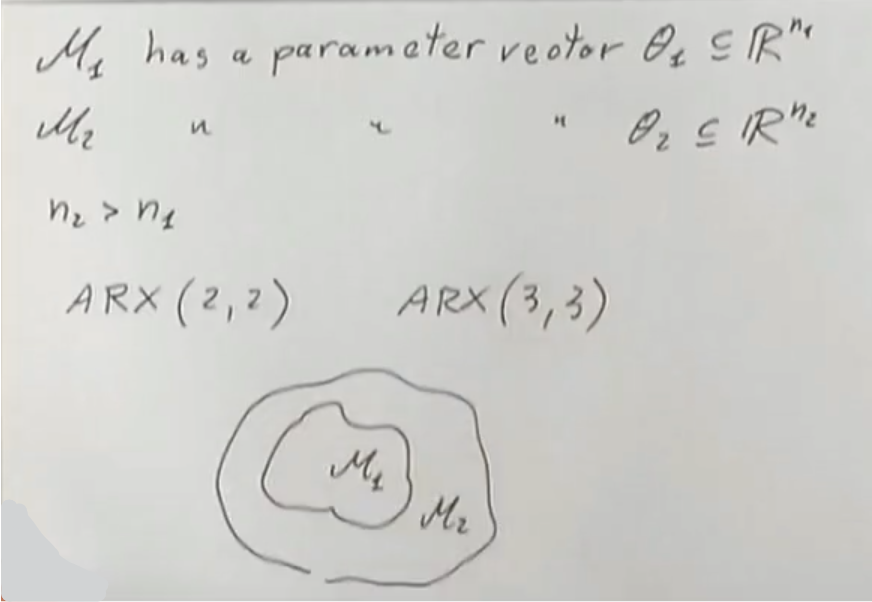 ℳ₁ has a parameter vector θ₁ ⊆ ℝⁿ¹
ℳ₂ " " " θ₂ ⊆ ℝⁿ²
n₂ > n₁
ARX(2,2) ARX(3,3)
ℳ₁
ℳ₂